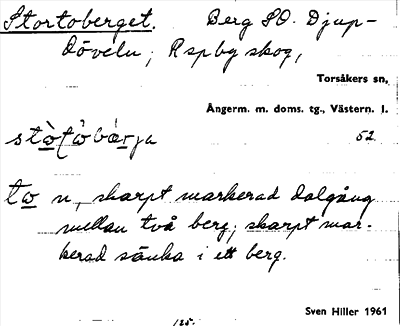 Stortoberget. Berg SO. Djup-
döveln, Rspby skog,
Torsåkers sn,
Ångerm. m. doms. tg., Västern. l.
52
tω n, skarpt markerad dalgång
mellan två berg; skarpt mar-
kerad sänka i ett berg.
Sven Hiller 1961
125.